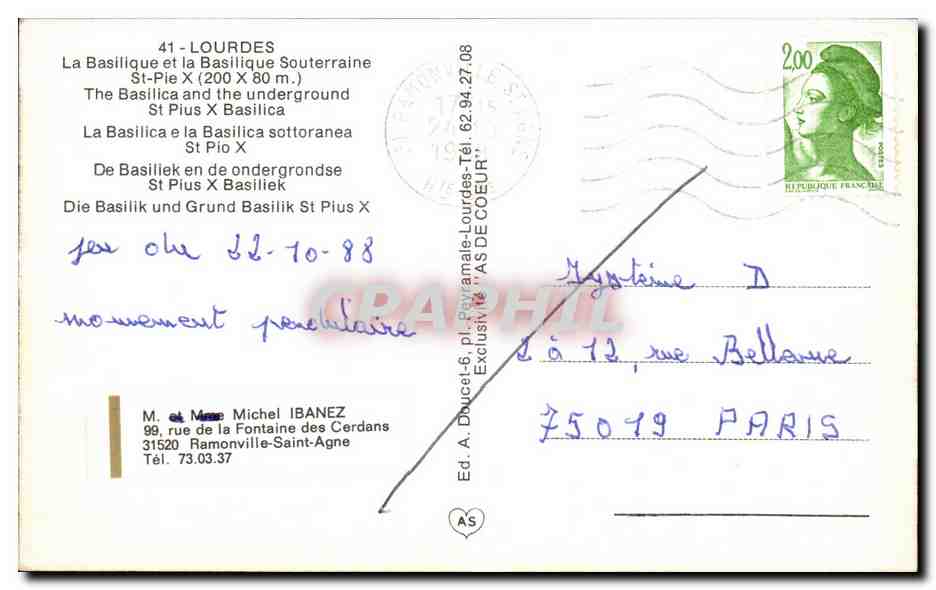 41 - LOURDES
La Basilique et la Basilique Souterraine
St-Pie X (200 X 80 m.)
The Basilica and the underground
St Pius X Basilica
La Basilica e la Basilica sottoranea
St Pio X
De Basiliek en de ondergrondse
St Pius X Basiliek
Die Basilik und Grund Basilik St Pius X
jeu du 22-10-88
monument pendulaire
M. et Mme Michel IBANEZ
99, rue de la Fontaine des Cerdans
31520 Ramonville-Saint-Agne
Tél. 73.03.37
Ed. A. Doucet-6, pl. Peyramale-Lourdes-Tél. 62.94.27.08
Exclusivité "AS DE COEUR"
AS
CPAPHIL
ST RAMONVILLE ST AGNE
2,00
POSTES
REPUBLIQUE FRANÇAISE
Mystère D
2 à 12, rue Bellevue
75019 PARIS